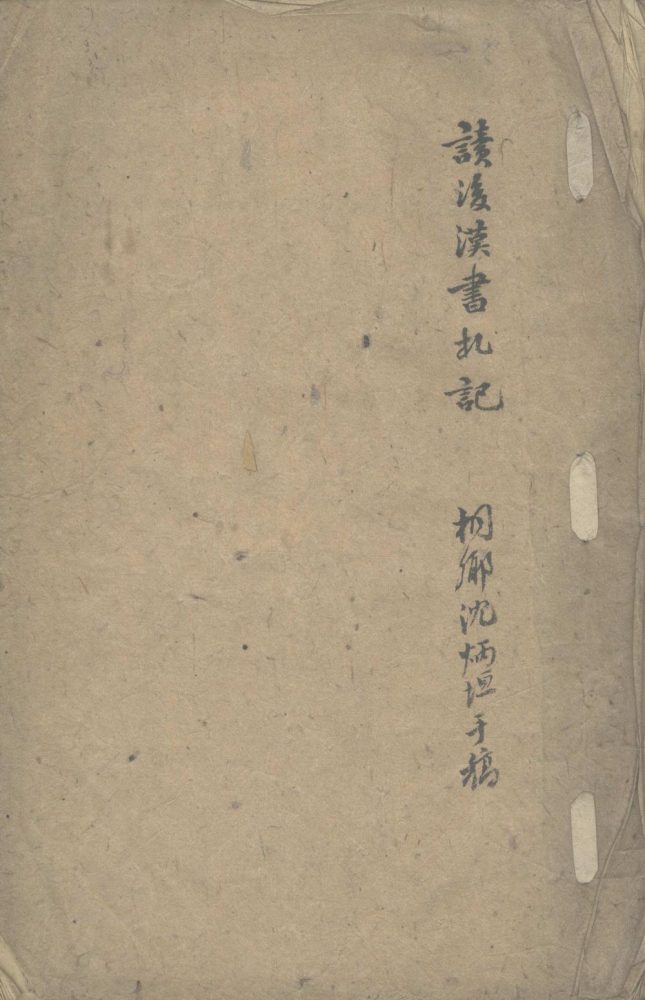 讀後漢書札記
桐鄉沈炳垣手稿